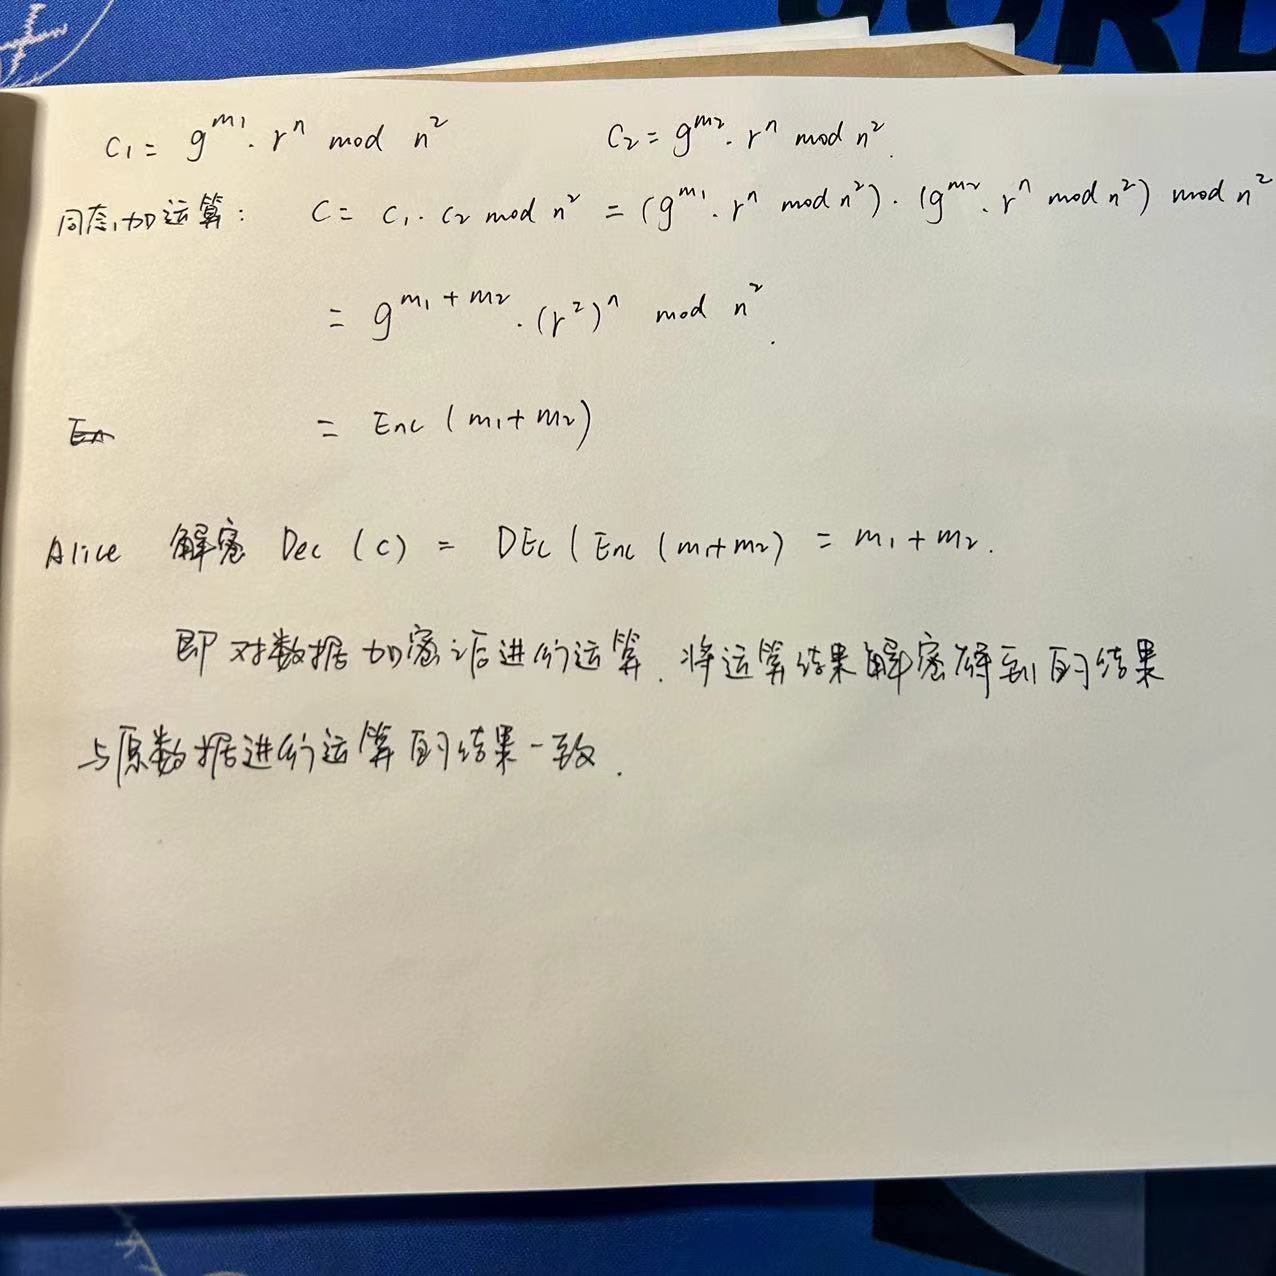 C₁ = g^m₁ · r^n mod n²    C₂ = g^m₂ · r^n mod n².
同态加运算: C = C₁ · C₂ mod n² = (g^m₁ · r^n mod n²) · (g^m₂ · r^n mod n²) mod n²
= g^(m₁ + m₂) · (r²)^n mod n².
= Enc (m₁+m₂)
Alice 解密 Dec (c) = DEC (Enc (m₁+m₂) = m₁ + m₂.
即对数据加密后进行运算. 将运算结果解密得到的结果
与原数据进行运算的结果一致.